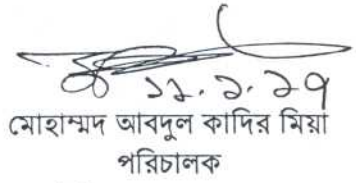 ১১.১.১৭
মোহাম্মদ আবদুল কাদির মিয়া
পরিচালক